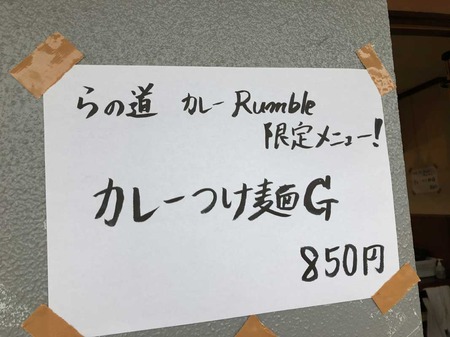 らの道 カレー Rumble
限定メニュー!
カレーつけ麺G
850円